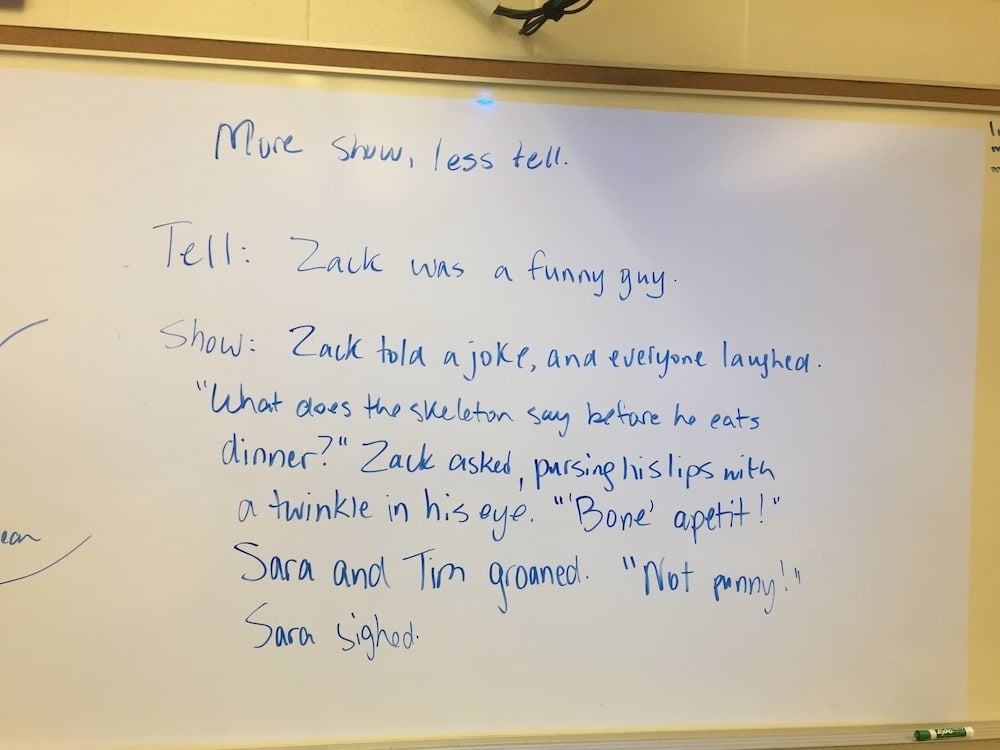 More show, less tell.
Tell: Zack was a funny guy.
Show: Zack told a joke, and everyone laughed.
"What does the skeleton say before he eats
dinner?" Zack asked, pursing his lips with
a twinkle in his eye. "'Bone' apetit!"
Sara and Tim groaned. "Not punny!"
Sara sighed.
EXPO